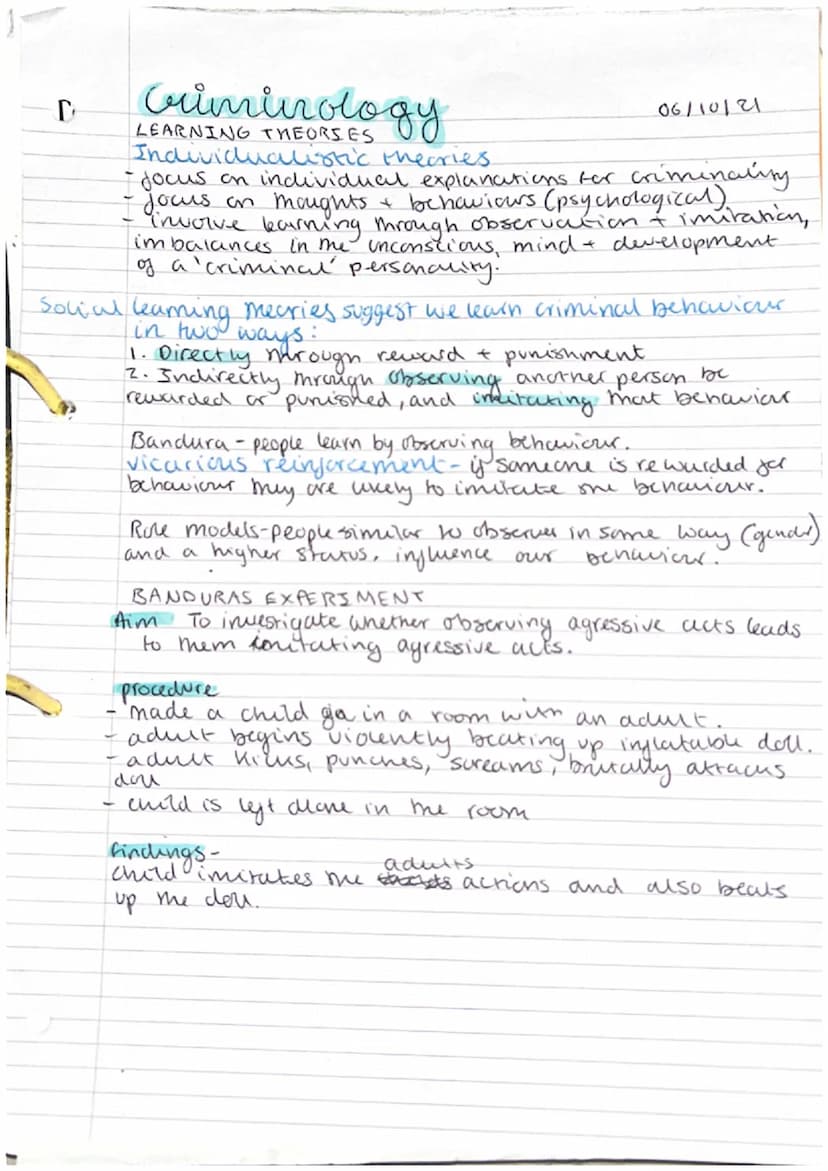 D
Criminology
06/10/21
LEARNING THEORIES
Individualistic theories
- focus on individual explanations for criminality
- focus on thoughts + behaviours (psychological)
- involve learning through observation + imitation,
imbalances in the unconscious, mind + development
of a 'criminal' personality.
Social learning theories suggest we learn criminal behaviour
in two ways:
1. Directly through reward + punishment
2. Indirectly through observing another person be
rewarded or punished, and imitating that behaviour
Bandura - people learn by observing behaviour.
vicarious reinforcement - if someone is rewarded for
behaviour they are likely to imitate the behaviour.
Role models - people similar to observer in some way (gender)
and a higher status, influence our behaviour.
BANDURAS EXPERIMENT
Aim To investigate whether observing agressive acts leads
to them imitating agressive acts.
procedure
- made a child go in a room with an adult.
- adult begins violently beating up inflatable doll.
- adult kicks, punches, screams, brutally attacks
doll
- child is left alone in the room
findings -
child imitates the adults actions and also beats
up the doll.